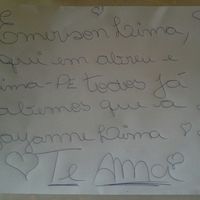 Emerson Lima,
qui em abreu e
ima-PE todos já
abemos que a
ayanne Lima
Te Amo